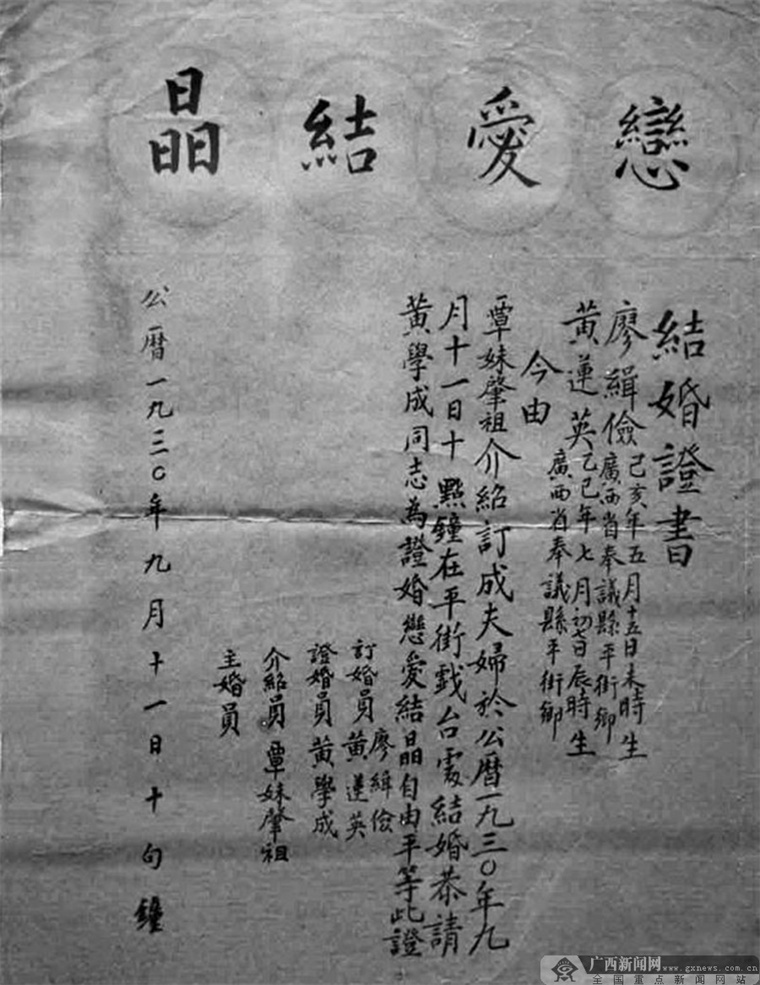 戀愛結晶
結婚證書
廖緝儉己亥年五月十五日未時生
廣西省奉議縣平街鄉
黃蓮英乙巳年七月初七日辰時生
廣西省奉議縣平街鄉
今由
覃妹肇祖介紹訂成夫婦於公曆一九三〇年九
月十一日十點鐘在平街戲台處結婚恭請
黃學成同志為證婚戀愛結晶自由平等此證
訂婚員廖緝儉
黃蓮英
證婚員黃學成
介紹員覃妹肇祖
主婚員
公曆一九三〇年九月十一日十句鐘
广西新闻网 www.gxnews.com.cn
全国重点新闻网站